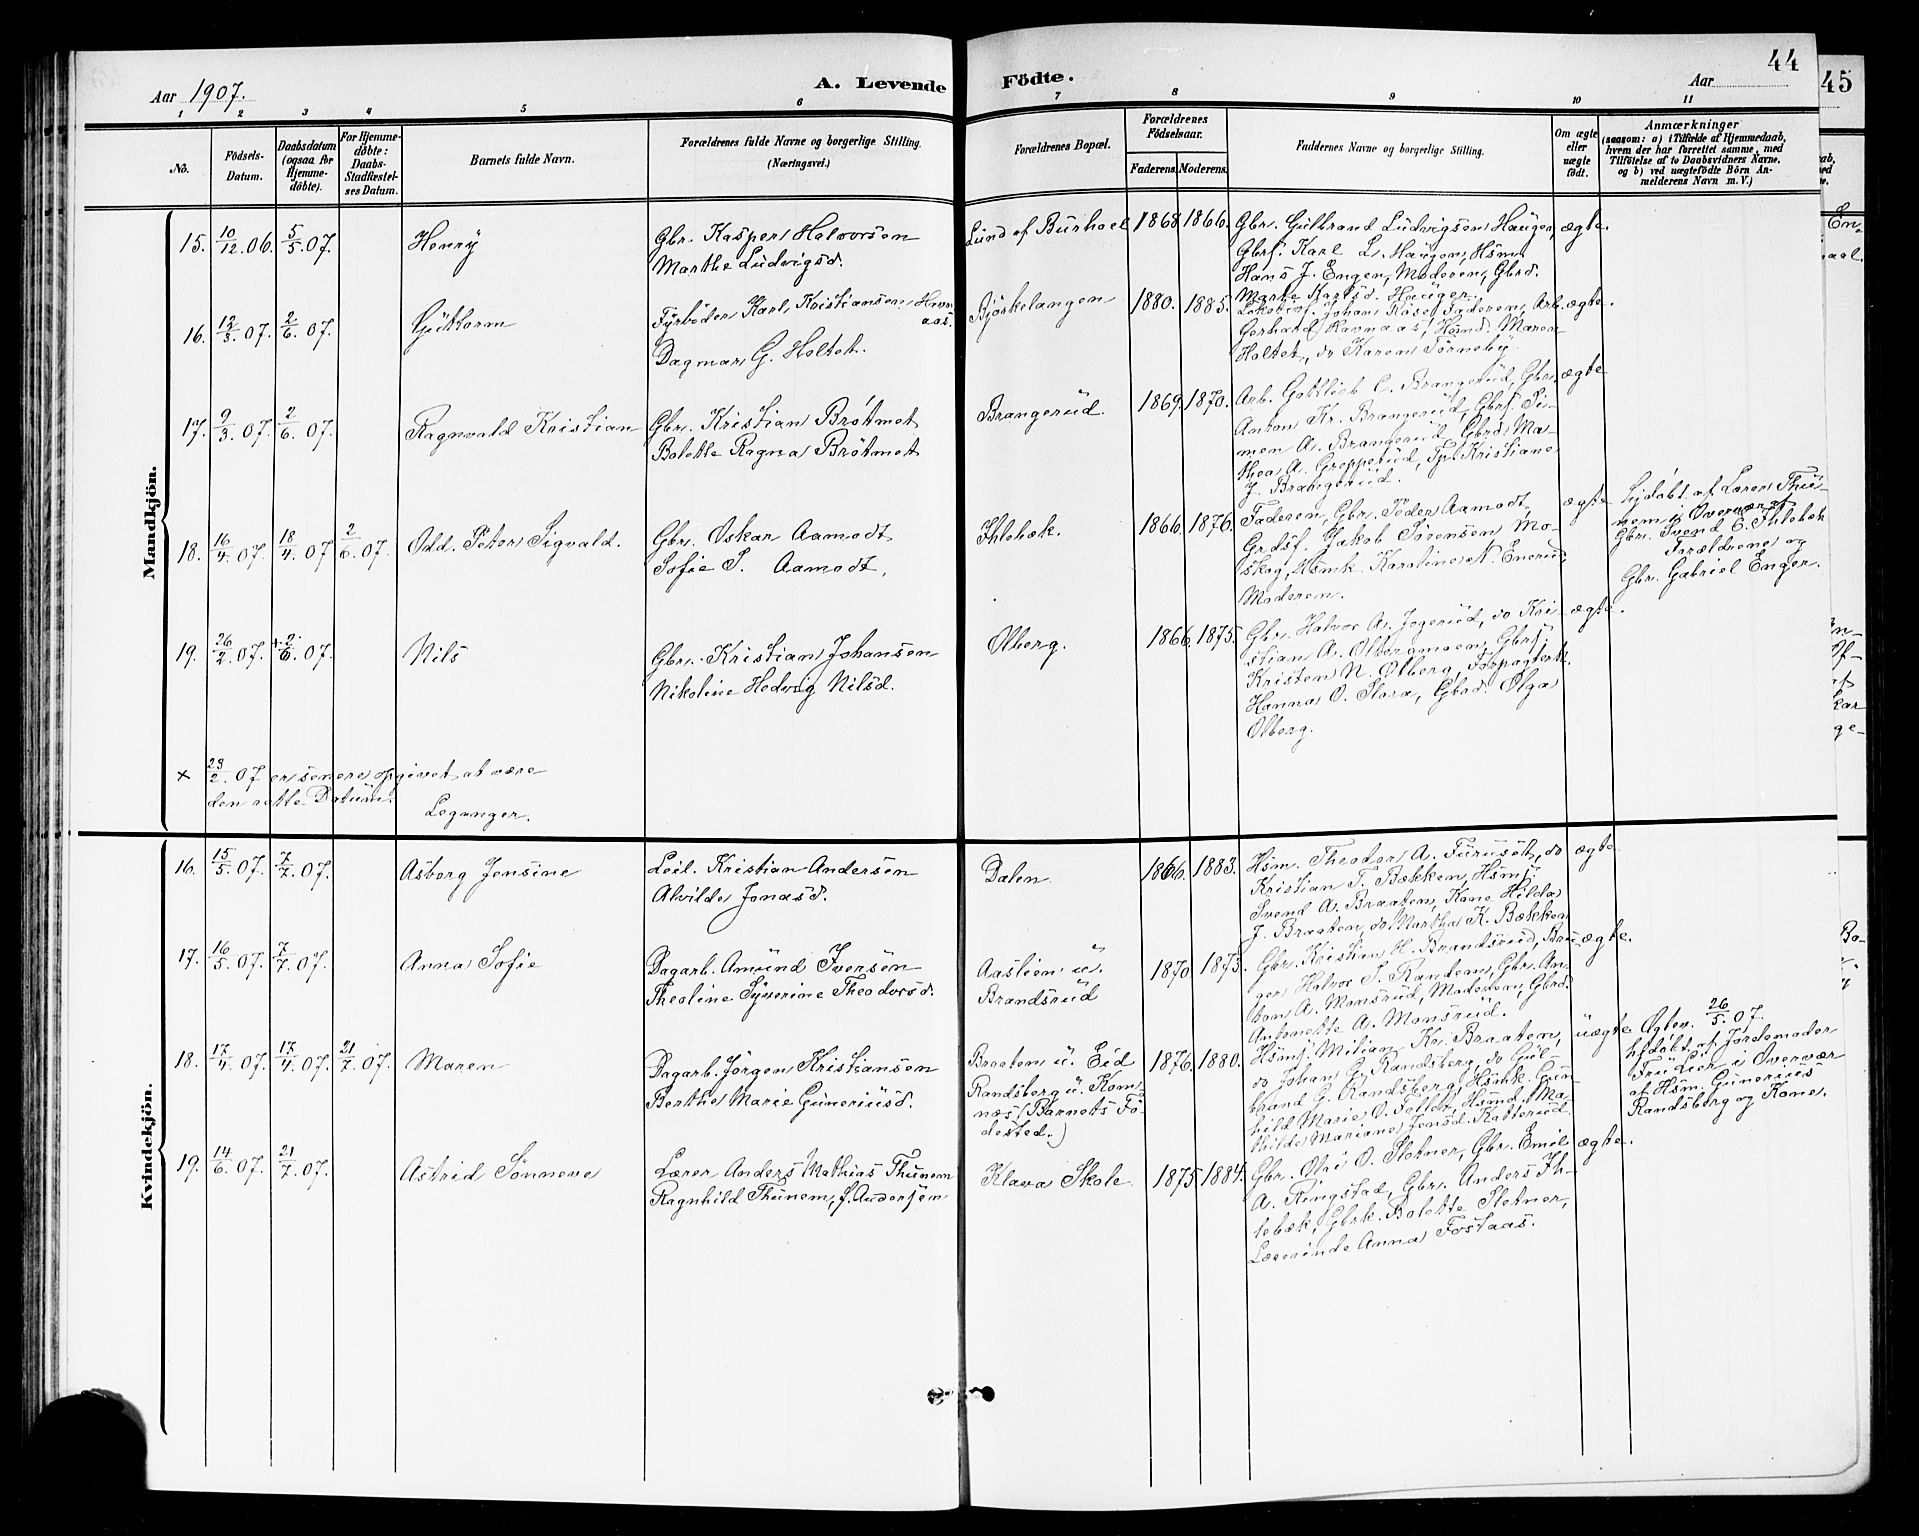 44
45
Aar 1907.
A. Levende Födte.
Aar
1 2 3 4 5 6 7 8 9 10 11
No.
Födsels-Datum.
Daabsdatum (ogsaa for Hjemme-döbte).
For Hjemme-döbte: Daabs-Stadfæstel-ses Datum.
Barnets fulde Navn.
Forældrenes fulde Navne og borgerlige Stilling.
(Næringsvei.)
Forældrenes Bopæl.
Forældrenes Födselsaar.
Faderens. Moderens.
Faddernes Navne og borgerlige Stilling.
Om ægte eller uægte födt.
Anmærkninger
(saasom: a) i Tilfælde af Hjemmedaab,
hvem der har forrettet samme, med
Tilföielse af to Daabsvidners Navne,
og b) ved uægtefödte Börn An-
melderens Navn m. V.)
Mandkjön.
15. 10/12.06. 5/5.07. Henry
Gbr. Kasper Halvorsen
Marthe Ludvigsd.
Lund af Burhol 1868 1866.
Gbr. Gulbrand Ludvigsen Haugen,
Gbrs. Karl L. Haugen, Hsm.
Hans J. Engen, Moderen, Gbrd.
Marte Karlsd. Haugen
ægte.
16. 12/3.07. 2/6.07. Guttorm
Fyrböder Karl Kristiansen Havn-
aas.
Dagmar G. Holtet.
Bjørkelangen 1880. 1885.
Johan Kaase, Faderen, Arb.
Gerhard Havnaas, Hsmd. Maren
Holtet, do Karen Tørneby
ægte.
17. 9/3.07. 2/6.07. Ragnvald Kristian
Gbr. Kristian Brøtmet
Bolette Ragna Brøtmet
Brangerud. 1869. 1870.
Arb. Gottlieb C. Brangerud, Gbr.
Anton Kr. Brangerud, Gbrs. Si-
men A. Brangerud, Gbrd. Ma-
thea A. Grepperud, Tp. Kristiane
J. Brangerud.
ægte
18. 16/4.07. 18/4.07 2/6.07. Odd Peter Sigvald.
Gbr. Oskar Aamodt
Sofie S. Aamodt.
Ihlebæk. 1866. 1876.
Faderen, Gbr. Peder Aamodt,
Grdsf. Jakob Sørensen Mo-
skog, Hsmk. Karoline N. Enerud,
Moderen.
ægte
Hjdöbt af Lærer Thu-
nem i Overvær af
Gbr. Svend E. Ihlebæk
Forældrene og
Gbr. Gabriel Enger.
19. 26/2.07. +2/6.07. Nils
Gbr. Kristian Johansen
Nikoline Hedvig Nilsd.
Ølberg. 1866. 1875.
Gbr. Halvor A. Jogerud, do Kri-
stian A. Ølbergmoen, Gbrs.
Kristen N. Ølberg, Forpagterk.
Hanna O. Slora, Gbrd. Olga
Ølberg.
ægte.
× 23/2.07 er senere opgivet at være
den rette Datum.
Leganger.
Kvindekjön.
16. 15/5.07. 7/7.07. Asborg Jensine
Leil. Kristian Andersen
Alvilde Jonasd.
Dalen 1866. 1883.
Hsm. Theodor A. Furuset, do
Kristian T. Bækken, Hsms.
Svend A. Braaten, Kone Hilda
J. Braaten, do Martha K. Bækken
ægte
17. 16/5.07. 7/7.07. Anna Sofie
Dagarb. Amund Iversen
Theoline Syverine Theodorsd.
Aaslien u.
Brandsrud
1870 1873.
Gbr. Kristian H. Brandsrud, Bru-
ger Halvor S. Randem, Gbr. An-
ton A. Monsrud, Moderen, Gbrd.
Antonette A. Monsrud.
ægte.
18. 17/4.07. 17/4.07. 21/7.07. Maren
Dagarb. Jørgen Kristiansen
Berthe Marie Guneriusd.
Braaten u. Eid
Randsberg u. Kom-
næs (Barnets Fö-
dested.)
1876. 1880.
Hsms. Milian Kr. Braaten,
do Johan G. Randsberg, do Gul-
brand G. Randsberg, Hsmk. Gun-
hild Marie O. Tollef, Hsmd. Ma-
thilde Mariane Jensd. Katterud.
uægte
26/5.07.
hjdöbt af Jordemoder
Fru Lier i Overvær
af Hsm. Gunerius
Randsberg og Kone.
19. 14/6.07. 21/7.07. Astrid Sønneve
Lærer Anders Mathias Thunem
Ragnhild Thunem, f. Andersen
Klava Skole. 1875 1884.
Gbr. Ole O. Sletner, Gbr. Emil
A. Ringstad, Gbr. Anders Ih-
lebæk, Gbrk. Bolette Sletner,
Lærerinde Anna Fosaas.
ægte.